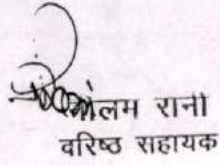 नीलम रानी
वरिष्ठ सहायक